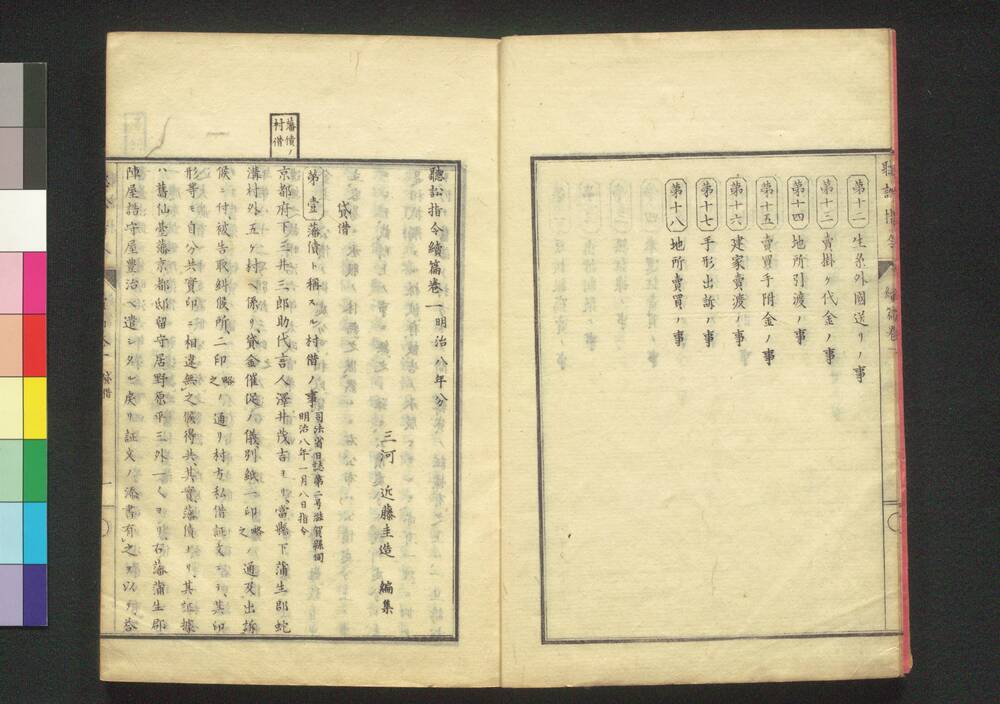 第十二 生糸外國送リノ事
第十三 賣掛ケ代金ノ事
第十四 地所引渡ノ事
第十五 賣買手附金ノ事
第十六 建家賣渡ノ事
第十七 手形出訴ノ事
第十八 地所賣買ノ事
藩債ノ
村借
聽訟指令續篇卷一 明治八年分
三河 近藤圭造 編集
貸借
第壹 藩債ト稱スル村借ノ事 司法省日誌第二号滋賀縣伺
明治八年一月八日指令
京都府下三井三郎助代言人澤井茂吉ヨリ當縣下蒲生郡蛇
溝村外五ケ村ヘ係リ貸金催促ノ儀別紙一印略之通及出訴
候ニ付被告取糾候所二印略之ノ通リ村方私借証文ニテ其印
形等モ自分共實印ニ相違無之候得共其實藩債ヨリ其証據
ハ舊仙臺藩京都邸留守居野原平三外一人ヨリ右藩蒲生郡
陣屋詰守屋豊治ヘ遣シタル戻リ証文ノ添書有之ヲ以